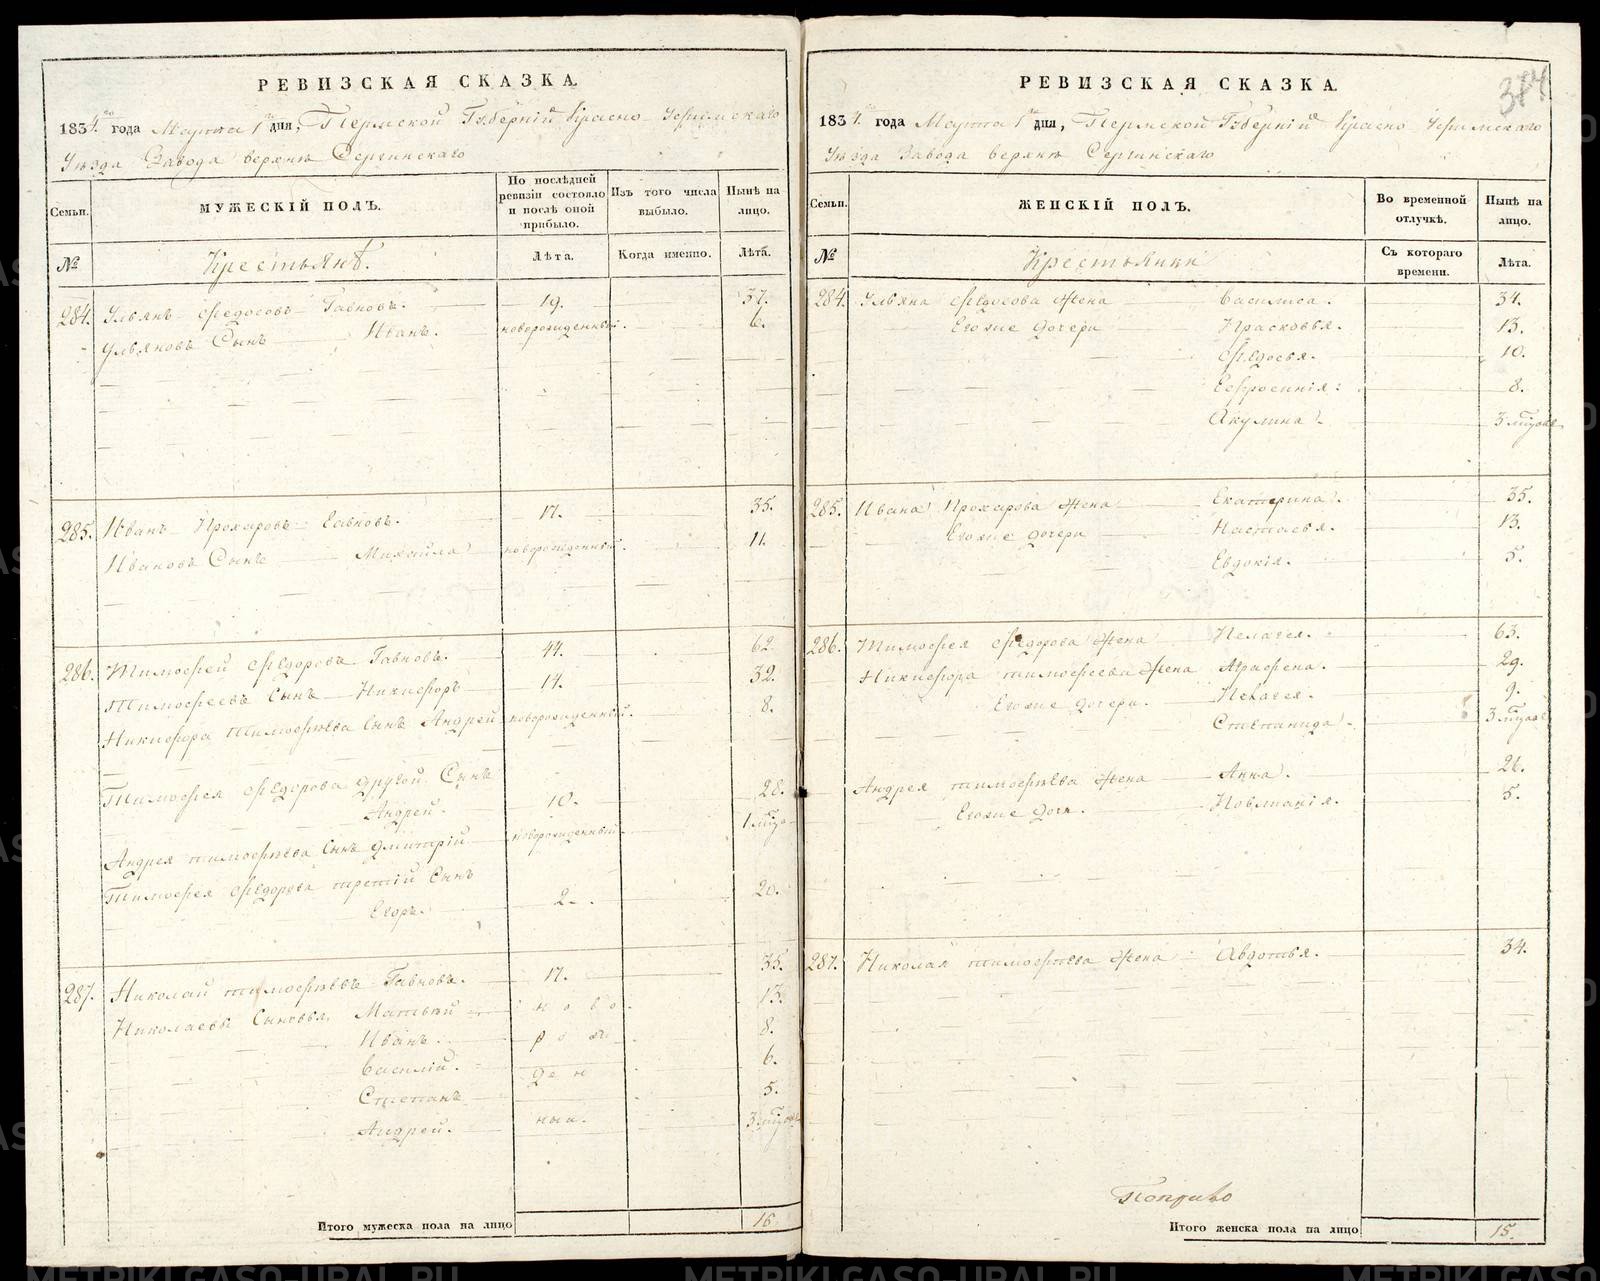 РЕВИЗСКАЯ СКАЗКА.
1834 года Марта 1 дня, Пермской Губерній Красно Уфимскаго
Уѣзда Завода верхнѣ Сергинскаго
Семьи.
МУЖЕСКІЙ ПОЛЪ.
По послѣдней ревизіи состояло и послѣ оной прибыло.
Изъ того числа выбыло.
Нынѣ на лицо.
№
Крестьянѣ.
Лѣта.
Когда именно.
Лѣта.
284. Ульянъ Федосовъ Гавновъ. 19. 37.
Ульяновъ Сынъ Иванъ. новорожденный. 6.
285. Иванъ Прохаровъ 17. 35.
Ивановъ Сынъ Михайла новорожденный. 11.
286. Тимофей Федоровъ Гавновъ. 44. 62.
Тимофеевъ Сынъ Никифоръ 14. 32.
Никифора Тимофѣева Сынъ Андрей новорожденный. 8.
Тимофея Федорова другой Сынъ
Андрей. 10. 28.
Андрея тимофѣева Сынъ Дмитрій новорожденный
Тимофея Федорова третій Сынъ
Егоръ. 2. 20.
287. Николай тимофѣевъ Гавновъ. 17. 35.
Николаевы Сыновья, Матвѣй ново 13.
Иванъ. рож 8.
Василій. 6.
Степанъ ден 5.
Андрей. ныи.
Итого мужеска пола на лицо 16
РЕВИЗСКАЯ СКАЗКА.
374
1834 года Марта 1 дня, Пермской Губерній Красно Уфимскаго
Уѣзда Завода верхнѣ Сергинскаго
Семьи.
ЖЕНСКІЙ ПОЛЪ.
Во временной отлучкѣ.
Нынѣ на лицо.
№
Крестьянки
Съ котораго времени.
Лѣта.
284. Ульяна Федосова Жена Василиса. 34.
Егоже дочери Прасковья. 13.
Федосья. 10.
Ефросинія. 8.
Акулина. 3
285. Ивана Прохарова Жена Екатерина. 35.
Егоже дочери Настасья. 13.
Евдокія. 5.
286. Тимофея Федорова Жена Пелагея. 63.
Никифора тимофеева Жена Аграфена. 29.
Егоже дочери. Пелагея. 9.
Степанида 3
Андрея тимофѣева Жена Анна. 26.
Егоже дочь. 5.
287. Николая тимофѣева Жена Авдотья. 34.
Итого женска пола на лицо 15.
METRIKI.GASO-URAL.RU
METRIKI.GASO-URAL.RU